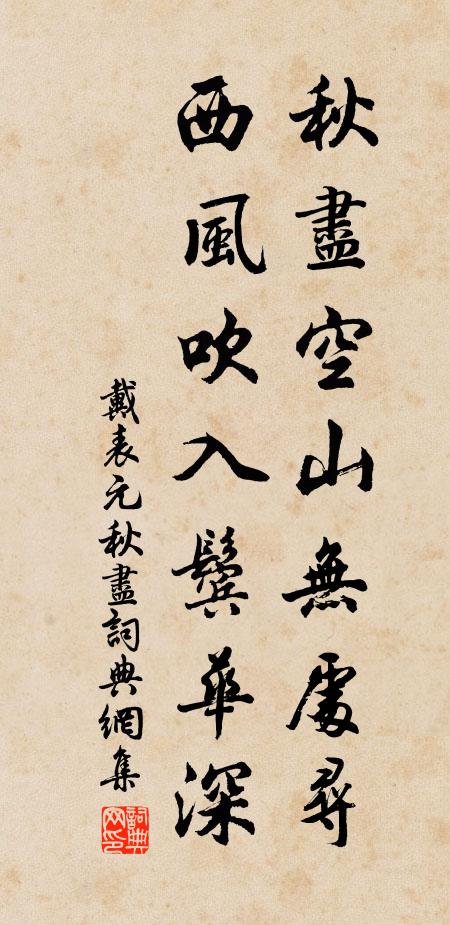 秋盡空山無處尋
西風吹入鬢華深
戴表元秋盡詞典網集
詞典網印